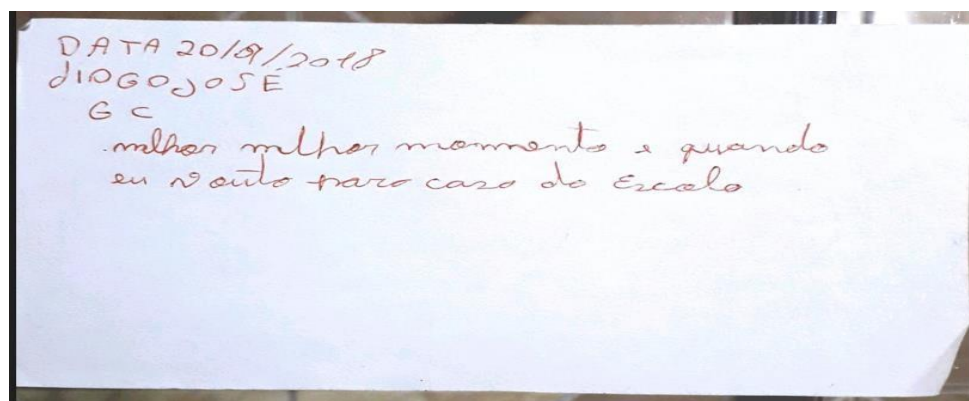 DATA 20/09/2018
JIOGOJOSÉ
G C
milhor milhor mommento e quando
eu vouto para casa da Escola